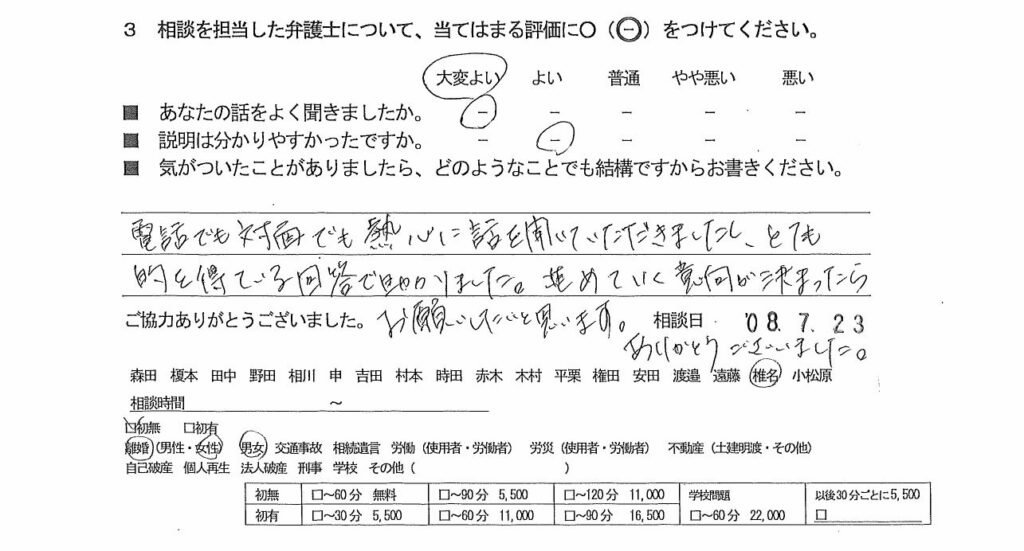 3 相談を担当した弁護士について、当てはまる評価に○(㊀)をつけてください。
大変よい よい 普通 やや悪い 悪い
■ あなたの話をよく聞きましたか。 － － － － －
■ 説明は分かりやすかったですか。 － － － － －
■ 気がついたことがありましたら、どのようなことでも結構ですからお書きください。
電話でも対面でも熱心に話を聞いていただきましたし、とても
的を得ている回答で助かりました。進めていく意向が決まったら
ご協力ありがとうございました。 お願いしたいと思います。 相談日 '08. 7. 23
ありがとうございました。
森田 榎本 田中 野田 相川 申 吉田 村本 時田 赤木 木村 平栗 権田 安田 渡邉 遠藤 椎名 小松原
相談時間 ～
□初無 □初有
離婚(男性・女性) 男女 交通事故 相続遺言 労働(使用者・労働者) 労災(使用者・労働者) 不動産(土建明渡・その他)
自己破産 個人再生 法人破産 刑事 学校 その他( )
初無 □～60分 無料 □～90分 5,500 □～120分 11,000 学校問題 以後30分ごとに5,500
初有 □～30分 5,500 □～60分 11,000 □～90分 16,500 □～60分 22,000 □